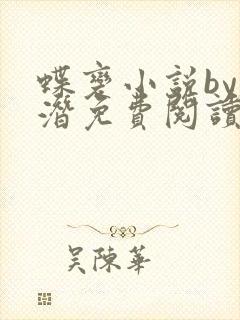 蝶裦小説by
潛免費閱讀
吴陳華